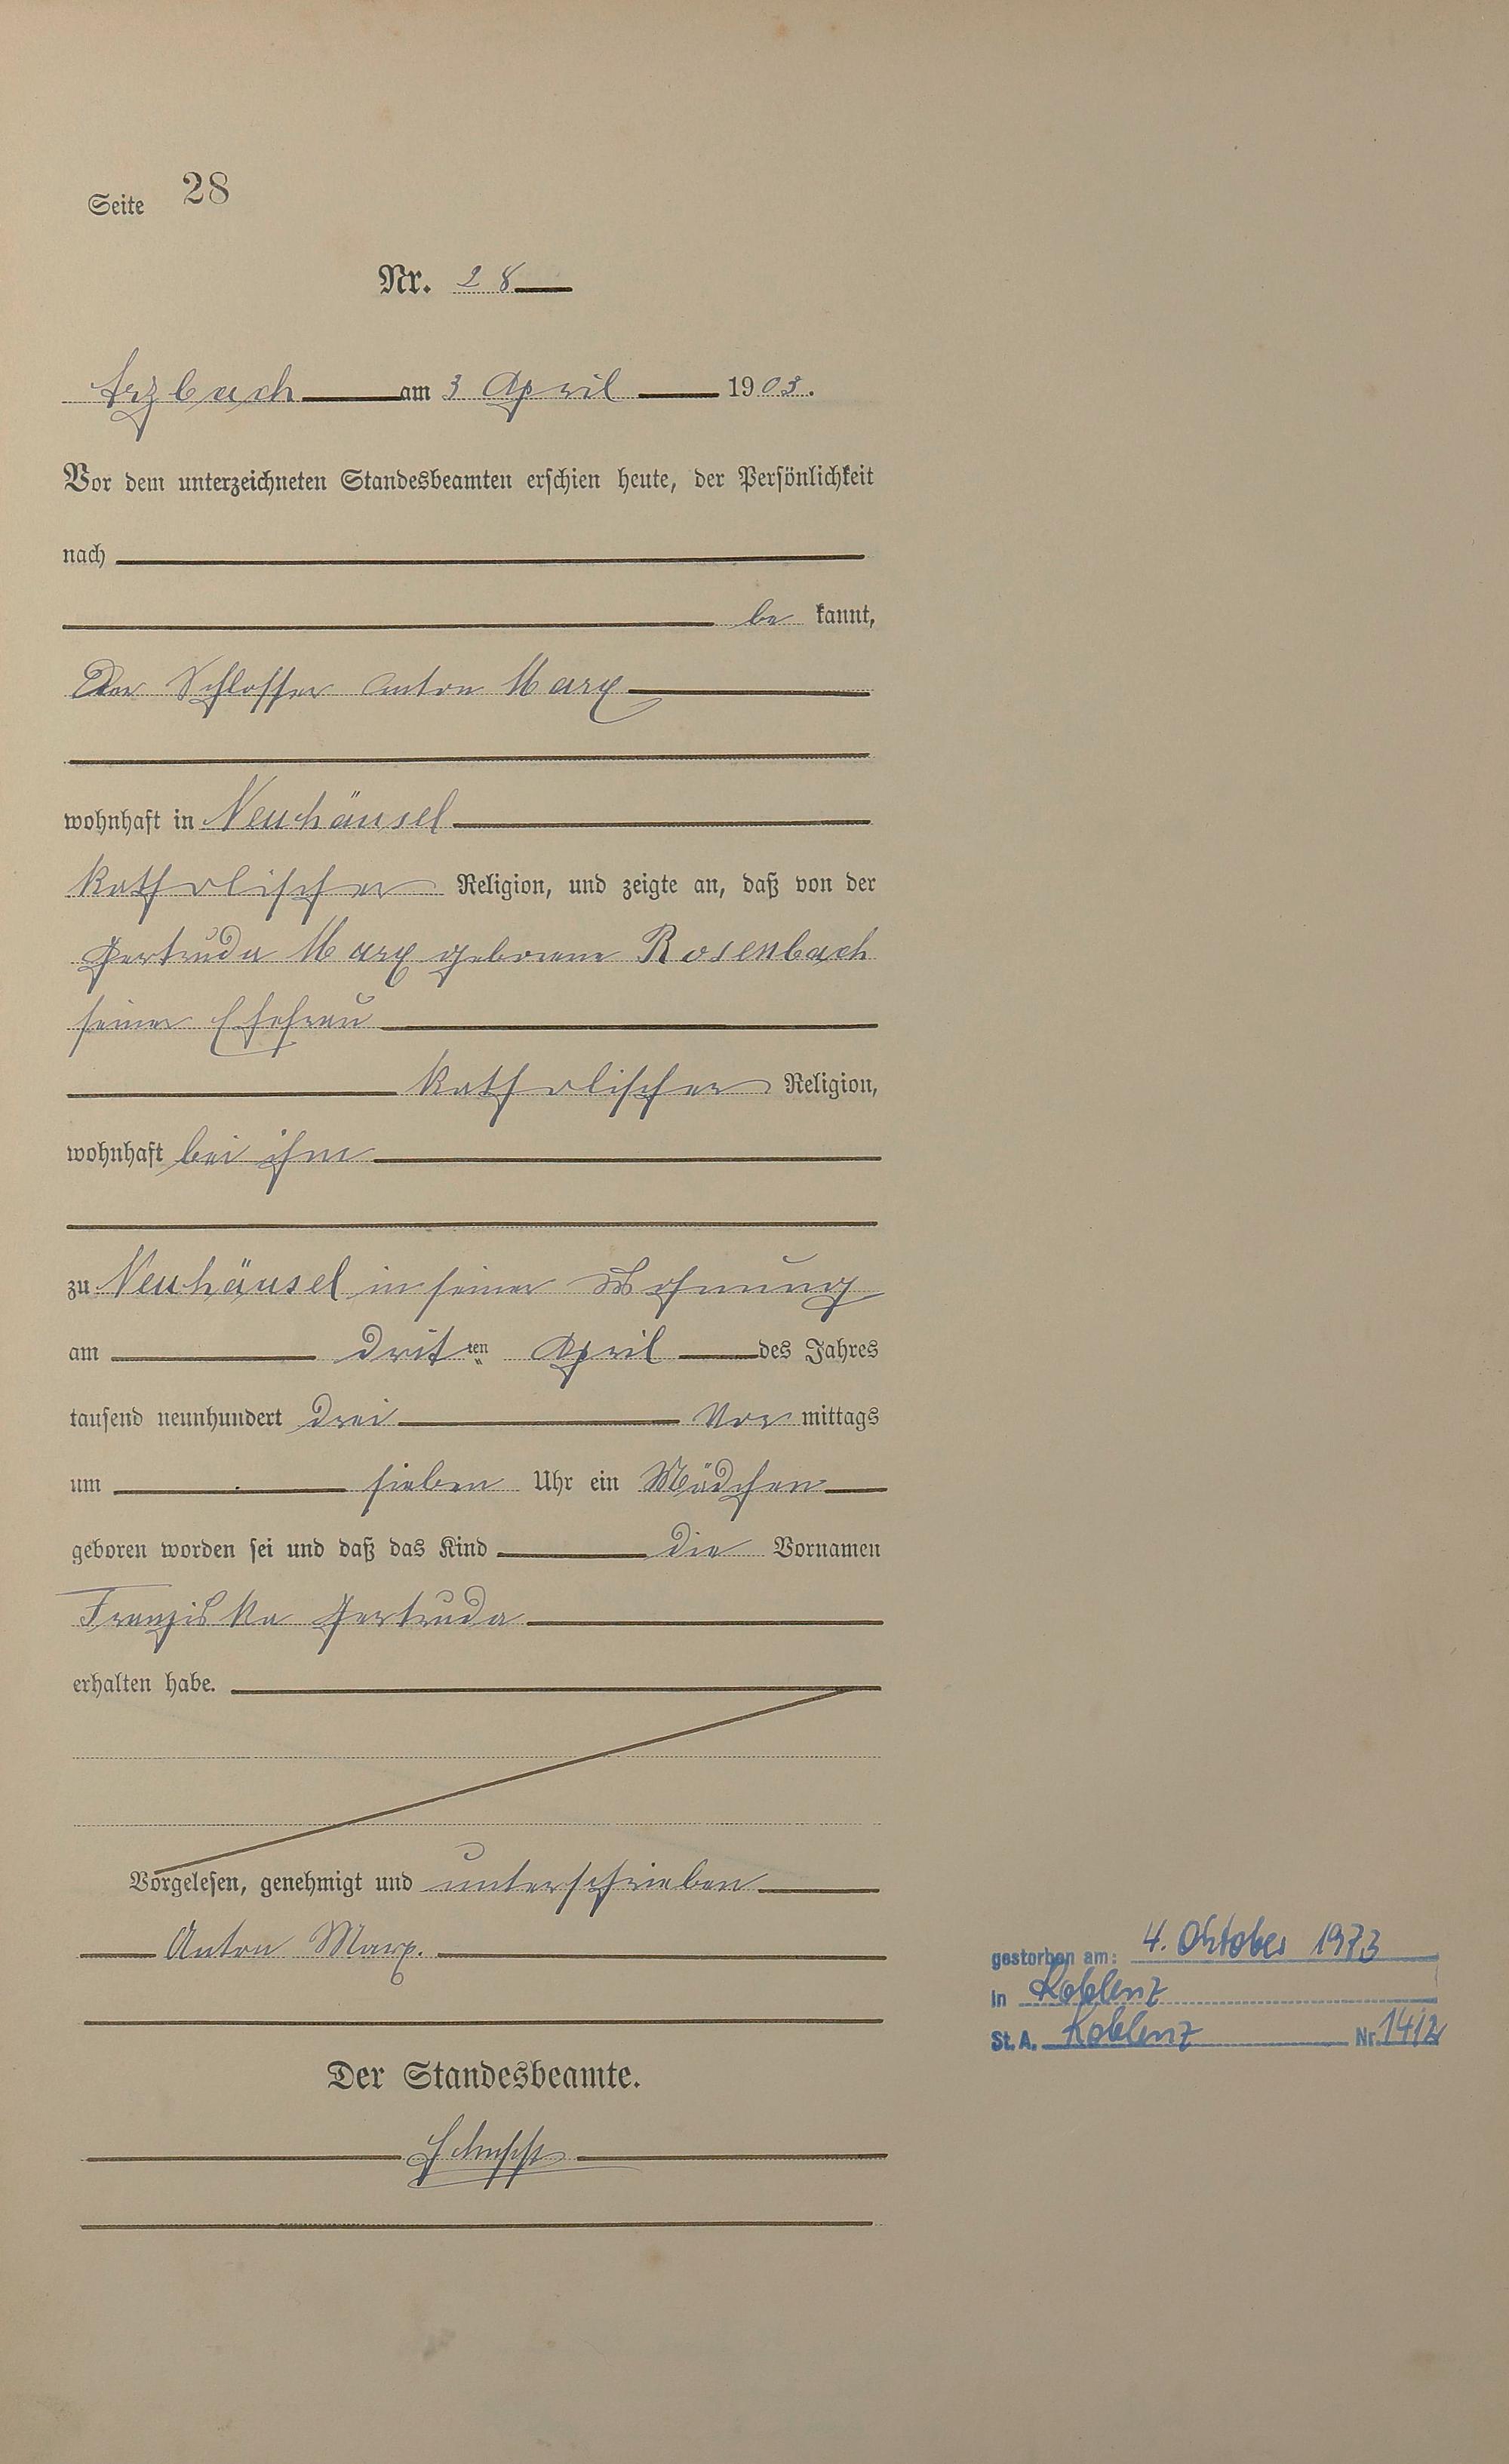 Seite 28
Nr. 28
Arzbach am 3 April 1903.
Vor dem unterzeichneten Standesbeamten erschien heute, der Persönlichkeit
nach
be kannt,
Der Schlosser Anton Marx
wohnhaft in Neuhäusel
katholischer Religion, und zeigte an, daß von der
Gertruda Marx geborene Rosenbach
seiner Ehefrau
katholischer Religion,
wohnhaft bei ihm
zu Neuhäusel in seiner Wohnung
am dritten April des Jahres
tausend neunhundert drei Vor mittags
um sieben Uhr ein Mädchen
geboren worden sei und daß das Kind die Vornamen
Franziska Gertruda
erhalten habe.
Vorgelesen, genehmigt und unterschrieben
Anton Marx.
Der Standesbeamte.
gestorben am: 4. Oktober 1973
in Koblenz
St. A. Koblenz Nr. 1412